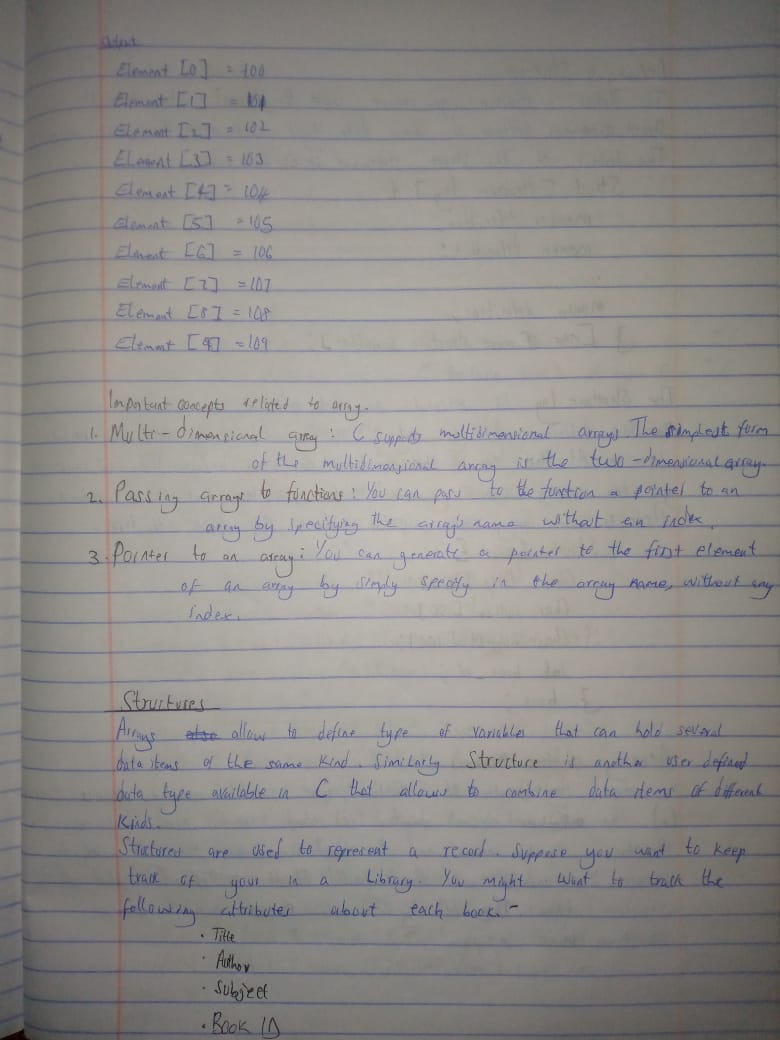 Output
Element [0] = 100
Element [1] = 101
Element [2] = 102
Element [3] = 103
Element [4] = 104
Element [5] = 105
Element [6] = 106
Element [7] = 107
Element [8] = 108
Element [9] = 109
Important concepts related to array.
1. Multi-dimensional array : C supports multidimensional arrays. The simplest form
of the multidimensional array is the two-dimensional array.
2. Passing arrays to functions : You can pass to the function a pointer to an
array by specifying the array's name without an index.
3. Pointer to an array : You can generate a pointer to the first element
of an array by simply specify in the array name, without any
index.
Structures
Arrays allow to define type of variables that can hold several
data items of the same kind. Similarly Structure is another user defined
data type available in C that allows to combine data items of different
kinds.
Structures are used to represent a record. Suppose you want to keep
track of your in a Library. You might want to track the
following attributes about each book -
• Title
• Author
• Subject
• Book ID